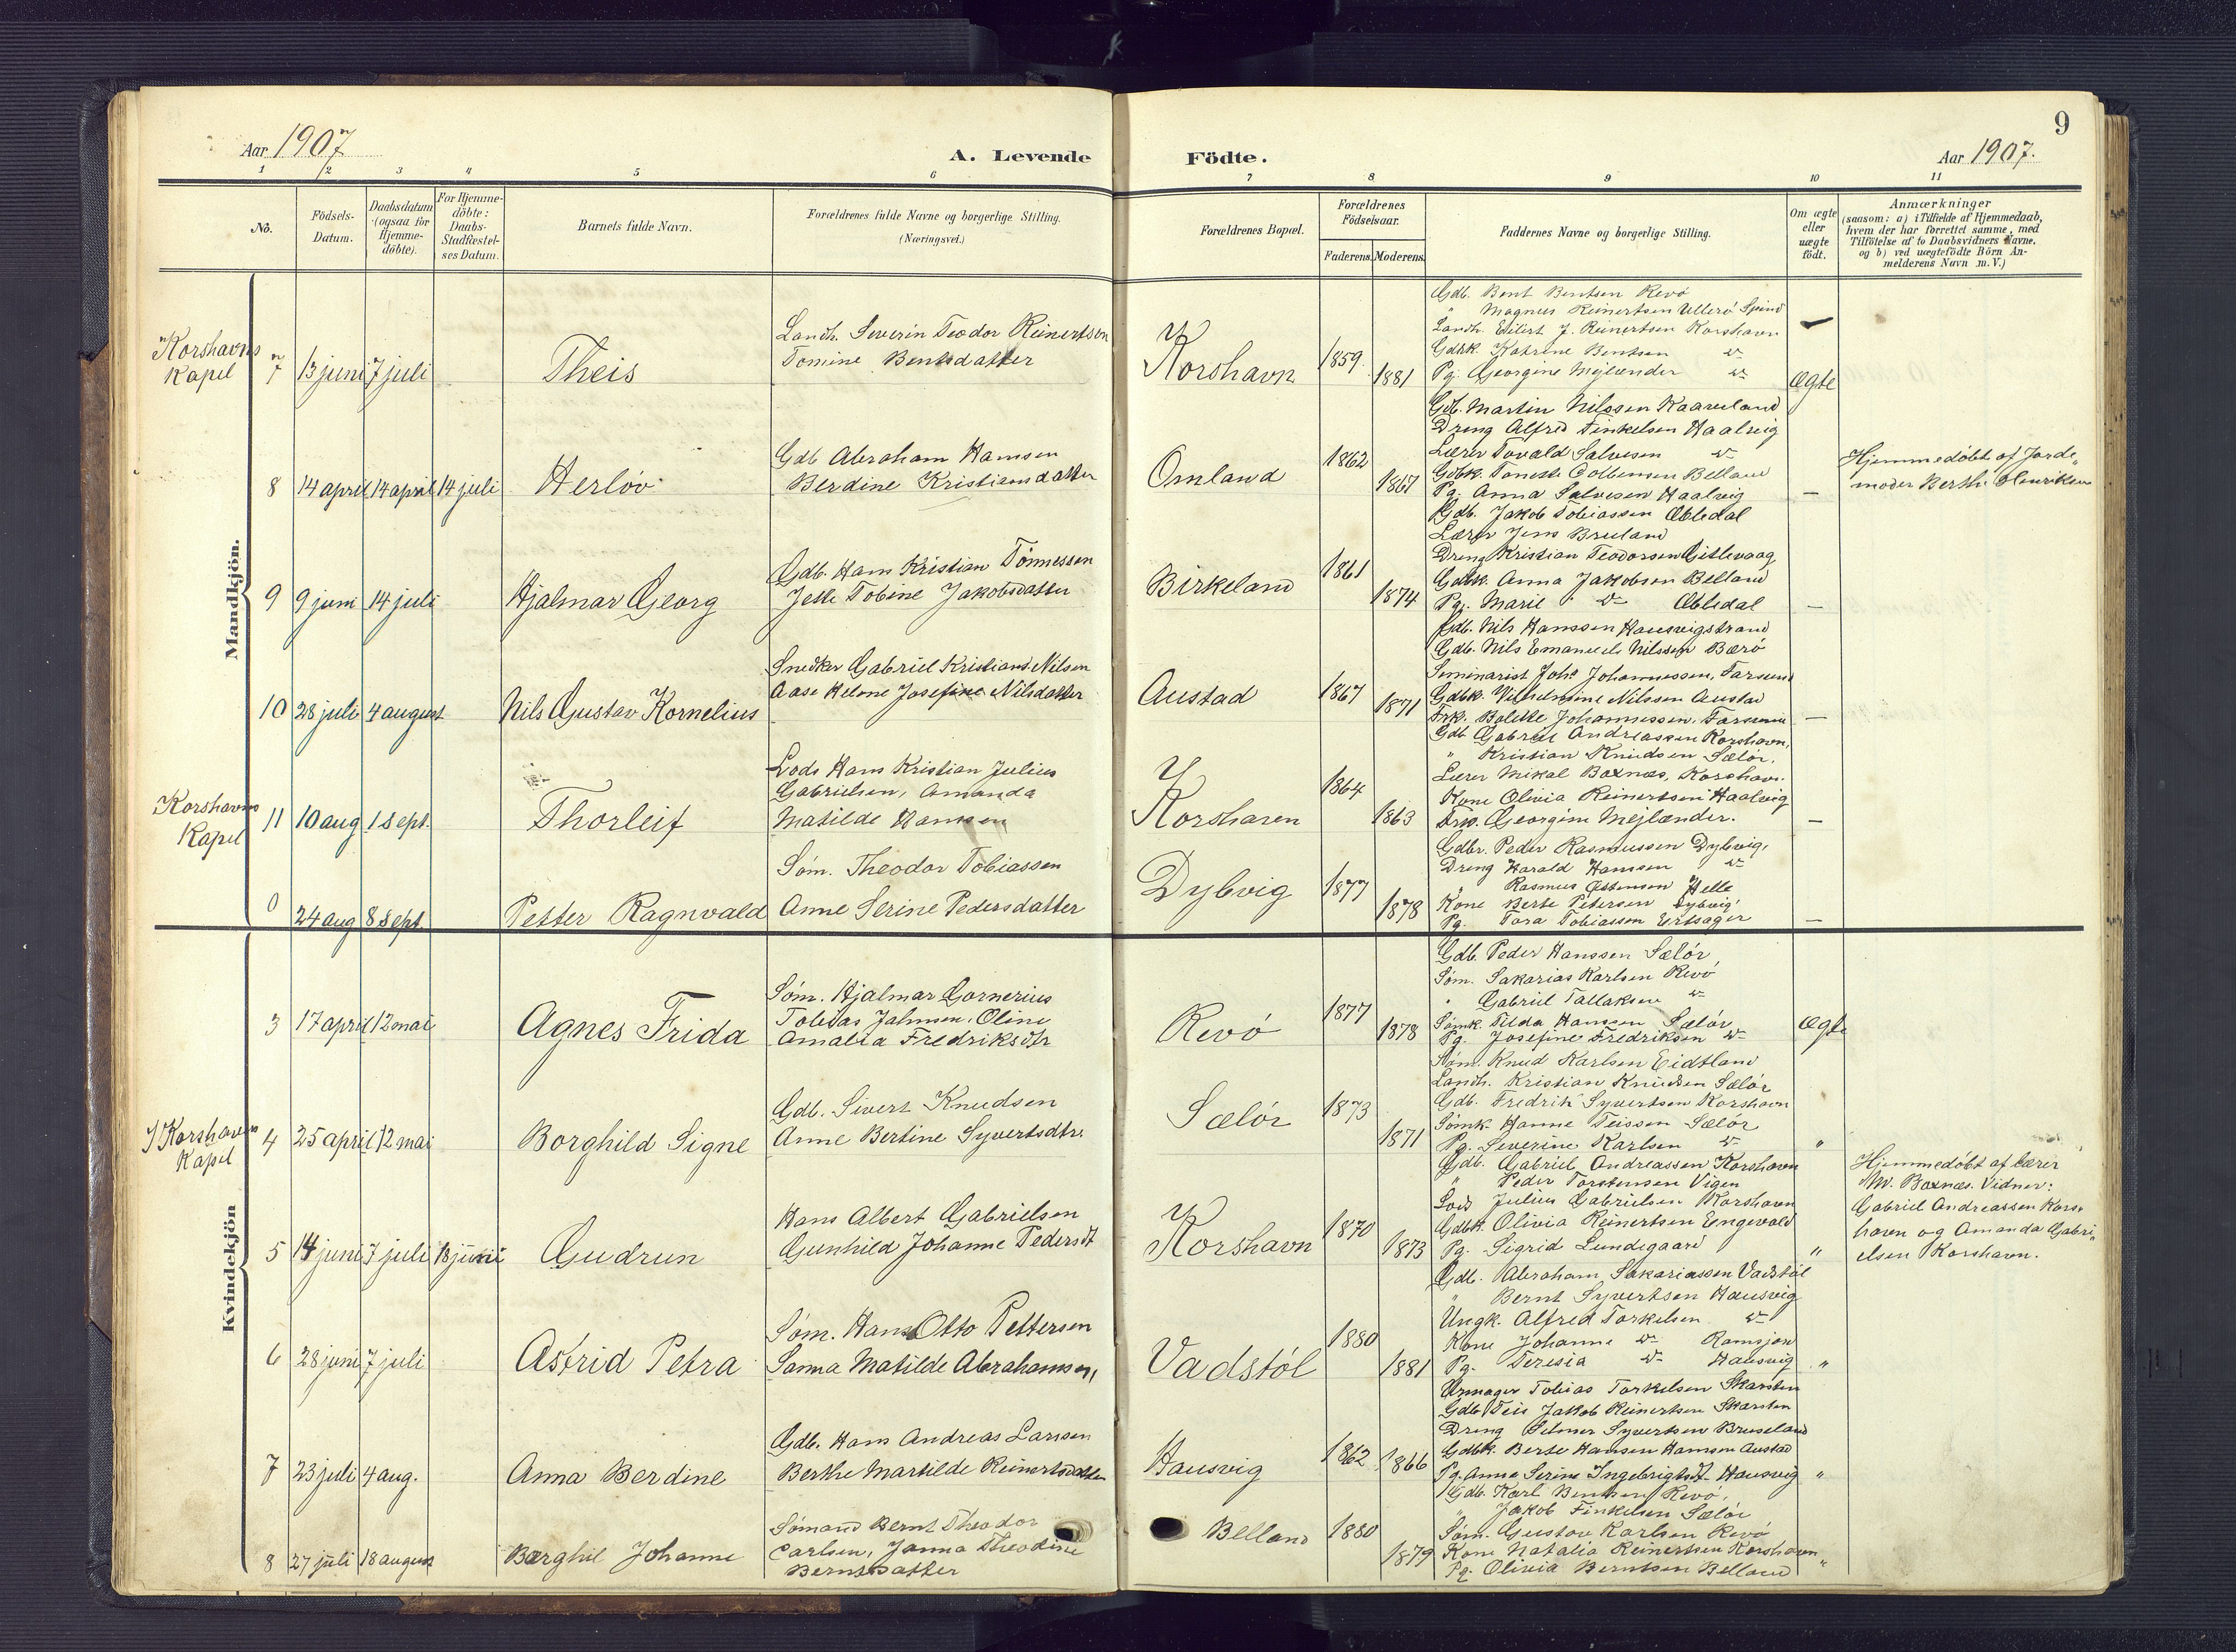 9
Aar 1907
A. Levende
Födte.
Aar 1907.
1 2 3 4 5 6 7 8 9 10 11
No.
Födsels-
Datum.
Daabsdatum
(ogsaa for
Hjemme-
döbte).
For Hjemme-
döbte:
Daabs-
Stadfæstel-
ses Datum.
Barnets fulde Navn.
Forældrenes fulde Navne og borgerlige Stilling.
(Næringsvei.)
Forældrenes Bopæl.
Forældrenes
Födselsaar.
Faderens. Moderens.
Faddernes Navne og borgerlige Stilling.
Om ægte
eller
uægte
födt.
Anmærkninger
(saasom: a) i Tilfælde af Hjemmedaab,
hvem der har forrettet samme, med
Tilföielse af to Daabsvidners Navne.
og b) ved uægtefödte Börn An-
melderens Navn m. V.)
Mandkjön.
Korshavns
Kapel
7 13 juni 7 juli
Theis
Landh. Severin Teodor Reinertsen
Tomine Bentsdatter
Korshavn
1859
1881
Gdb. Bent Bentsen Revö
" Magnus Reinertsen Ullerö Spind
Landh. Eilert J. Reinertsen Korshavn
Gdbk. Katrine Bentsen do
Pg. Georgine Mejlænder do
Ægte
8 14 april 14 april 14 juli
Herlöv
Gdb Abraham Hansen
Berdine Kristiansdatter
Omland
1862
1867
Gdb. Martin Nilssen Kaareland
Dreng Alfred Finkelsen Haalvig
Lærer Tovald Salvesen do
Gdbk. Tomette Belland
Pg. Anna Salvesen Haalvig
—
Hjemmedöbt af Jorde-
moder Berth. Henriksen
9 9 juni 14 juli
Hjalmar Georg
Gdb. Hans Kristian Tönnessen
Jette Tobine Jakobsdatter
Birkeland
1861
1874
Gdb. Jakob Tobiassen Æbledal
Lærer Jens Brueland
Dreng Kristian Teodorsen Gitlevaag
Gdbk. Anna Jakobsen Belland
Pg. Marie do Æbledal
—
10 28 juli 4 august
Nils Gustav Kornelius
Snedker Gabriel Kristians Nilsen
Aase Helene Josefine Nilsdatter
Austad
1867
1871
Gdb. Nils Hanssen Hausvigstrand
Gdb. Nils Emanuels Nilssen Bærö
Seminarist Johs Johannessen, Farsund
Gdbk. Vilhelmine Nilssen Austad
Frk. Bolette Johannessen. Farsund
—
Korshavns
Kapel
11 10 aug 1 sept.
Thorleif
Lods Hans Kristian Julius
Gabrielsen, Amanda
Matilde Hansen
Korshavn
1864
1863
Gdb Gabriel Andreassen Korshavn,
" Kristian Knudsen Sælör.
Lærer Mikal Boxnæs, Korshavn.
Kone Olivia Reinertsen Haalvig
Frk. Georgine Mejlænder.
—
24 aug 8 sept.
Petter Ragnvald
Söm. Theodor Tobiassen
Anne Serine Pedersdatter
Dybvig
1877
1878
Gdbr. Peder Rasmussen Dybvig,
Dreng Harald Hanssen do
" Rasmus Östensen Helle
Kone Berte Petersen Dybvig
Pg. Tora Tobiassen Ertsager
—
Kvindekjön
3 17 april 12 mai
Agnes Frida
Söm. Hjalmar Gornerius
Tobias Jahnsen. Oline
Amalia Fredriksdtr
Revö
1877
1878
Gdb. Peder Hanssen Sælör,
Söm. Sakarias Karlsen Revö
" Gabriel Tallaksen do
Sömk. Tilda Hanssen Sælör
Pg. Josefine Fredriksen do
Ægte
I Korshavns
Kapel
4 25 april 12 mai
Borghild Signe
Gdb. Sivert Knudsen
Anne Bertine Syvertsdtr.
Sælör
1873
1871
Söm. Knud Karlsen Eidtland
Landh. Kristian Knudsen Sælör
Gdb. Fredrik Syvertsen Korshavn
Sömk. Hanne Teissen Sælör
Pg. Severine Karlsen do
"
5 14 juni 7 juli 18 juni
Gudrun
Hans Albert Gabrielsen
Gunhild Johanne Pedersdt
Korshavn
1870
1873
Gdb. Gabriel Andreassen Korshavn
" Peder Torstensen Vigen
Lods Julius Gabrielsen Korshavn
Gdbk. Olivia Reinertsen Engevold
Pg. Sigrid Lundegaard
"
Hjemmedöbt af lærer
M. Boxnæs. Vidner:
Gabriel Andreassen Kors-
havn og Amanda Gabri-
elsen Korshavn.
6 28 juni 7 juli
Astrid Petra
Söm. Hans Otto Pettersen
Sanna Matilde Abrahamsen,
Vadstöl
1880
1881
Gdb. Abraham Sakariassen Vadstöl
" Bernt Syvertsen Hausvig
Ungk. Alfred Torkelsen do
Kone Johanne do Ramsjon
Pg. Teresia do Hausvig
"
7 23 juli 4 aug.
Anna Berdine
Gdb. Hans Andreas Larsen
Berthe Martilde Reinertsdatter
Hausvig
1862
1866
Urmager Tobias Torkelsen Skarsten
Gdb Teis Jakob Reinertsen Skarsten
Dreng Selmer Syvertsen Brueland
Gdbk. Berte Hansen Hansen Austad
Pg. Anne Serine Ingebrigtsdt Hausvig
"
8 27 juli 18 august
Børghil Johanne
Sömand Bernt Theodor
Carlsen, Janna Theodine
Berntsdatter
Belland
1880
1879
Gdb. Karl Bentsen Revö.
" Jakob Finkelsen Sælör
Söm. Gustav Karlsen Revö
Kone Natalia Reinertsen Korshavn
Pg. Olivia Berntsen Belland
"